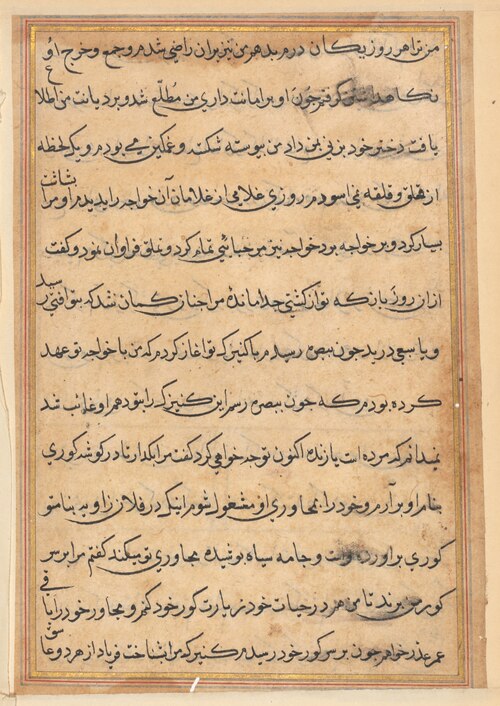 من ترا هر روز یکان درم بدهم من نیز بران راضی شدم و جمع و خرج او
نکاه داشتن کرفتم چون او بر امانت داری من مطلع شد و بر دیانت من اطلاع
یافت دختر خود بزنی بمن داد من پیوسته شکسته و غمکین می بودم و یک لحظه
از قلق و قلقه نمی اسودم روزی غلامی از غلامان آن خواجه مرا بدید و مرا بشاشت
بسیار کرد و بر خواجه برد خواجه نیز مرحبا تمام کرد و تملق فراوان نمود و کفت
ازان روز باز که تو از کشتی جدا مانده مرا چنان کمان نشد که بتو افتی رسید
و یا سبعی درید چون ببصره رسیدم با کنیزک تو اغاز کردم که من با خواجه تو عهد
کرده بودم که چون ببصره رسم این کنیزک را بتو دهم او غائب شد
نمیدانم که مرده است یا زنده اکنون توچه خواهی کرد کفت مرا بکذار تا در کوشه کوری
بنام او بر آرم و خود را بمجاوری او مشغول شوم اینک در فلان زاویه بنام تو
کوری براورده است و جامه سیاه پوشیده مجاوری تو میکند کفتم مرا بر سر
کور من برید تا من هم در حیات خود زیارت کور خود کنم و مجاور خود را باقی
عمر عذر خواهم چون بر سر کور خود رسیدم کنیزک مرا بشناخت فریاد از هر دو عاشق